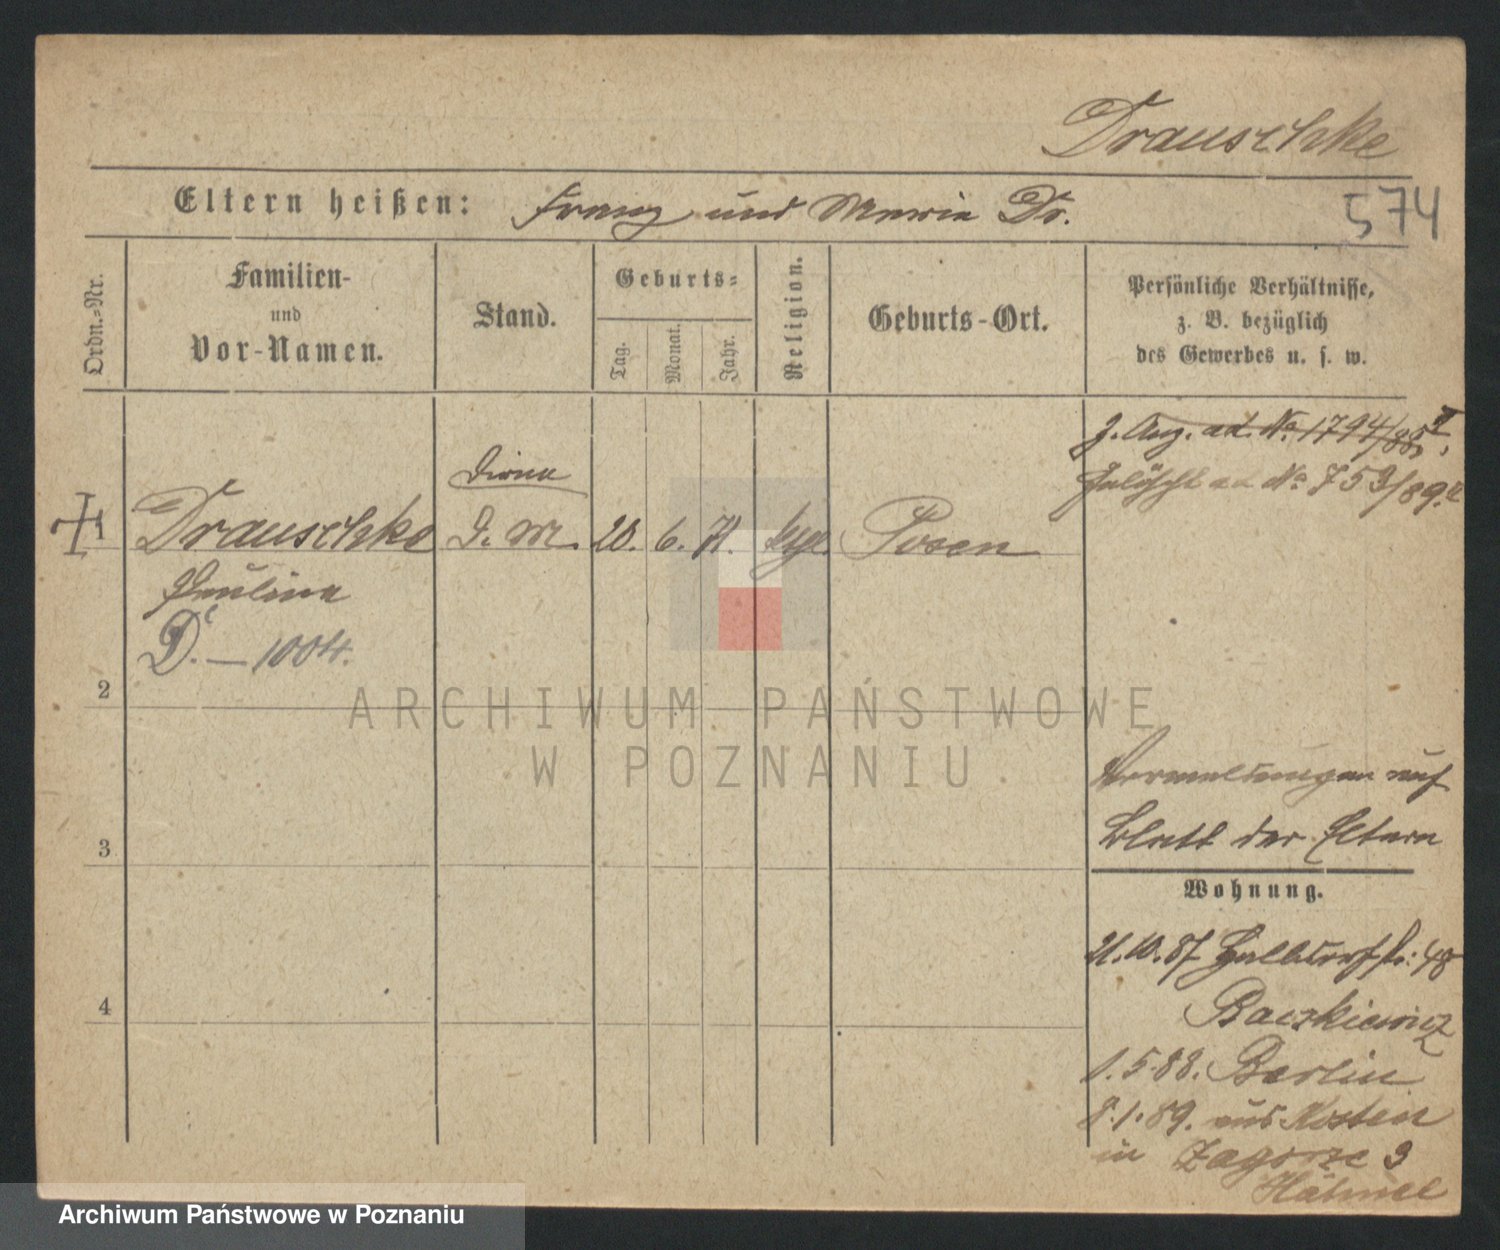 Drauschke
Eltern heißen: Franz und Maria Dr.
574
Ordn.=Nr.
Familien-
und
Vor-Namen.
Stand.
Geburts=
Tag. Monat. Jahr.
Religion.
Geburts-Ort.
Persönliche Verhältnisse,
z. B. bezüglich
des Gewerbes u. s. w.
z. Aug. ad. No. 1794/88
Gelöscht ad No 753/89.
Dirne
Drauschke D. M. 20. 6. 71. Posen
Paulina
D. — 1004.
2
ARCHIWUM PAŃSTWOWE
W POZNANIU
Vermeldungen auf
3
Blatt der Eltern
Wohnung.
21.10.87 Halbdorfstr: 48
4
Baczkiewicz
1.5.88. Berlin
8.1.89. aus Kosten
in Zagorze 3
Archiwum Państwowe w Poznaniu